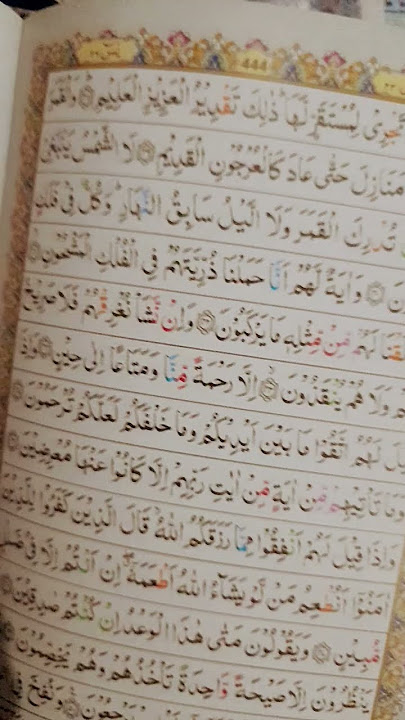 ٤٤٤
تَجْرِىْ لِمُسْتَقَرٍّ لَّهَا ؕ ذٰلِكَ تَقْدِيْرُ الْعَزِيْزِ الْعَلِيْمِ ۞ وَالْقَمَرَ
مَنَازِلَ حَتّٰى عَادَ كَالْعُرْجُوْنِ الْقَدِيْمِ ۞ لَا الشَّمْسُ يَنْۢبَغِىْ
تُدْرِكَ الْقَمَرَ وَلَا الَّيْلُ سَابِقُ النَّهَارِ ؕ وَكُلٌّ فِىْ فَلَكٍ
۞ وَاٰيَةٌ لَّهُمْ اَنَّا حَمَلْنَا ذُرِّيَّتَهُمْ فِى الْفُلْكِ الْمَشْحُوْنِ ۞
لَهُمْ مِّنْ مِّثْلِهٖ مَا يَرْكَبُوْنَ ۞ وَاِنْ نَّشَاْ نُغْرِقْهُمْ فَلَا صَرِيْخَ
وَلَا هُمْ يُنْقَذُوْنَ ۞ اِلَّا رَحْمَةً مِّنَّا وَمَتَاعًا اِلٰى حِيْنٍ ۞ وَاِذَا
لَهُمُ اتَّقُوْا مَا بَيْنَ اَيْدِيْكُمْ وَمَا خَلْفَكُمْ لَعَلَّكُمْ تُرْحَمُوْنَ ۞
وَمَا تَاْتِيْهِمْ مِّنْ اٰيَةٍ مِّنْ اٰيٰتِ رَبِّهِمْ اِلَّا كَانُوْا عَنْهَا مُعْرِضِيْنَ ۞
وَاِذَا قِيْلَ لَهُمْ اَنْفِقُوْا مِمَّا رَزَقَكُمُ اللّٰهُ ۙ قَالَ الَّذِيْنَ كَفَرُوْا لِلَّذِيْنَ
اٰمَنُوْۤا اَنُطْعِمُ مَنْ لَّوْ يَشَآءُ اللّٰهُ اَطْعَمَهٗۤ ۖ اِنْ اَنْتُمْ اِلَّا فِىْ ضَلٰلٍ
مُّبِيْنٍ ۞ وَيَقُوْلُوْنَ مَتٰى هٰذَا الْوَعْدُ اِنْ كُنْتُمْ صٰدِقِيْنَ ۞
يَنْظُرُوْنَ اِلَّا صَيْحَةً وَّاحِدَةً تَاْخُذُهُمْ وَهُمْ يَخِصِّمُوْنَ ۞
يَرْجِعُوْنَ ۞ وَنُفِخَ فِى